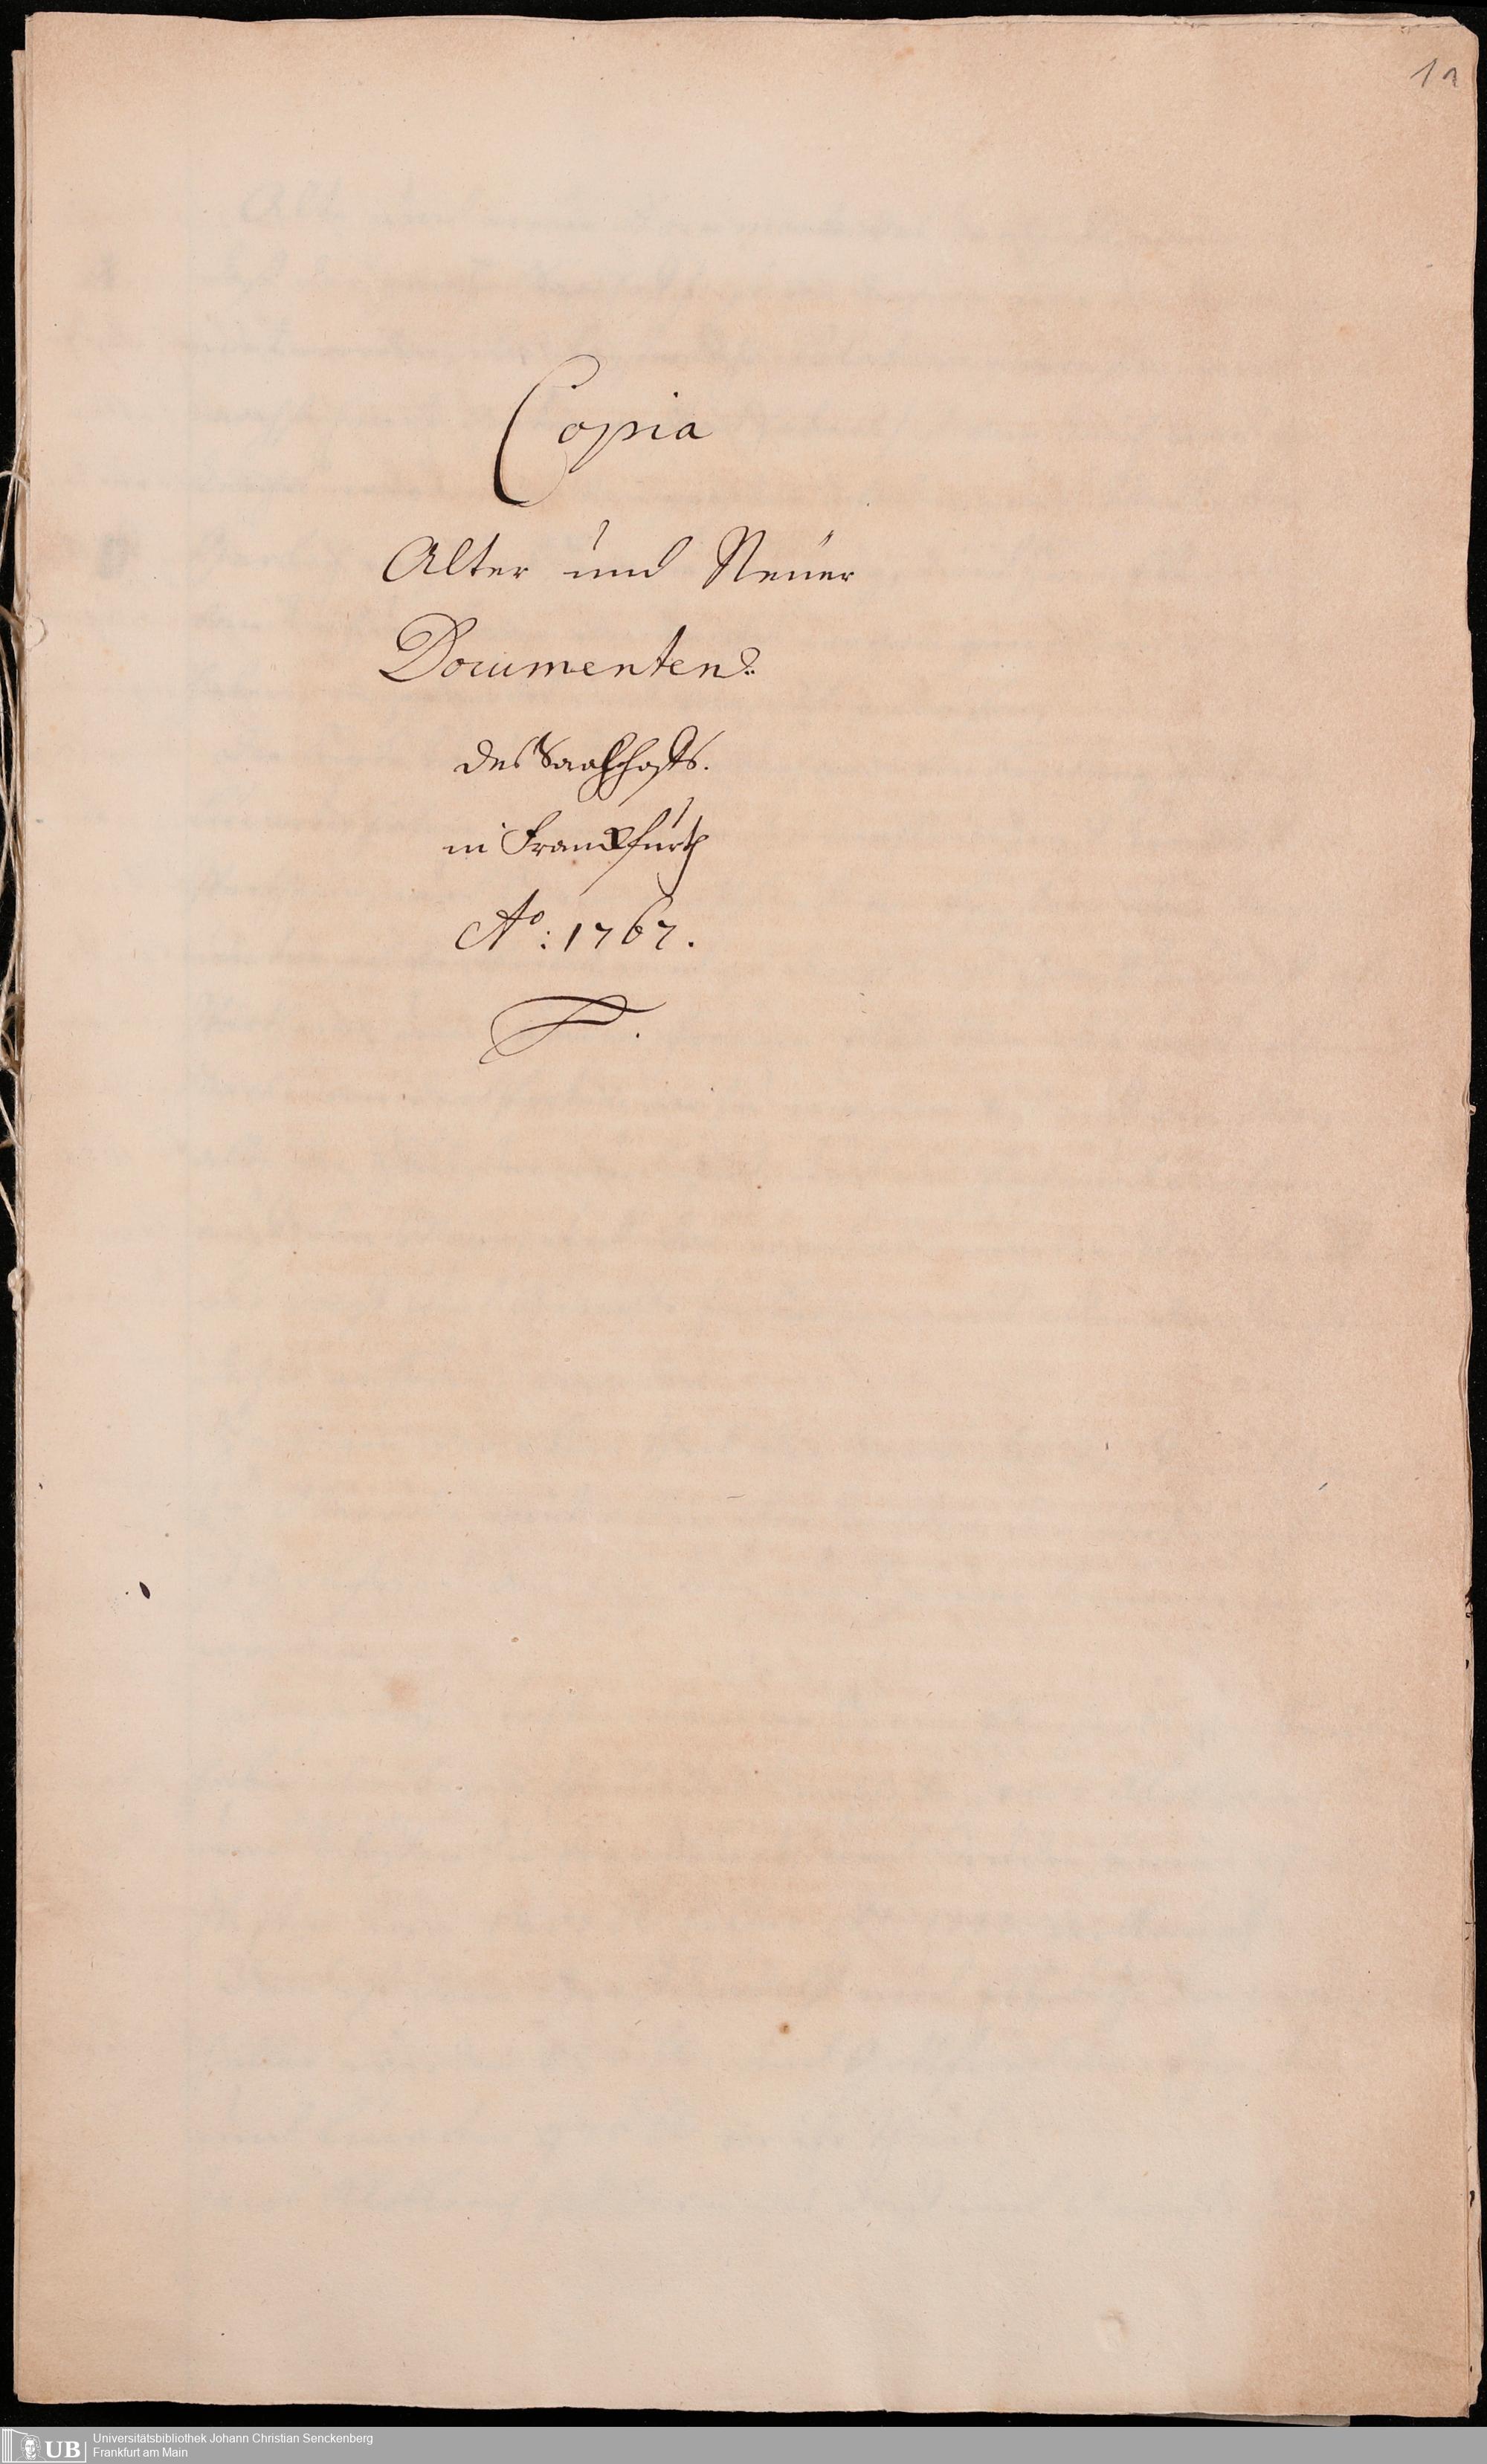 1a
Copia
Alter und Neuer
Documenten
des Saalhoffs.
in Franckfurth
Ao: 1767.
UB
Universitätsbibliothek Johann Christian Senckenberg
Frankfurt am Main